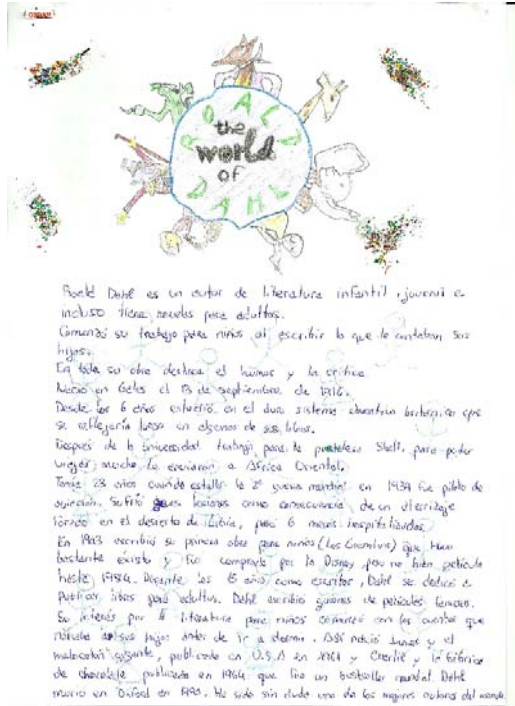 the
world
of
ROALD
DAHL
Roald Dahl es un autor de literatura infantil, juvenil e
incluso tiene novelas para adultos.
Comenzó su trabajo para niños al escribir lo que le contaban sus
hijos.
En toda su obra destaca el humor y la crítica
Nació en Gales el 13 de septiembre de 1916.
Desde los 6 años estudió en el duro sistema educativo británico que
se reflejaría luego en algunos de sus libros.
Después de la Universidad trabajó para la petrolera Shell, para poder
viajar mucho. Le enviaron a África Oriental.
Tenía 23 años cuando estalló la 2ª guerra mundial en 1939 fue piloto de
aviación. Sufrió graves lesiones como consecuencia de un aterrizaje
forzado en el desierto de Libia, pasó 6 meses hospitalizado.
En 1943 escribió su primera obra para niños (Los Gremlins) que tuvo
bastante éxisto y fue comprada por la Disney pero no hubo película
hasta 1984. Durante los 15 años como escritor, Dahl se dedicó a
publicar libros para adultos. Dahl escribió guiones de películas famosas.
Su interés por la literatura para niños comenzó con los cuentos que
relataba a sus hijos antes de ir a dormir. Así nació James y el
melocotón gigante, publicado en U.S.A en 1961 y Charlie y la fábrica
de chocolate publicado en 1964 que fue un bestseller mundial. Dahl
murió en Oxford en 1990. Ha sido sin duda uno de los mejores autores del mundo